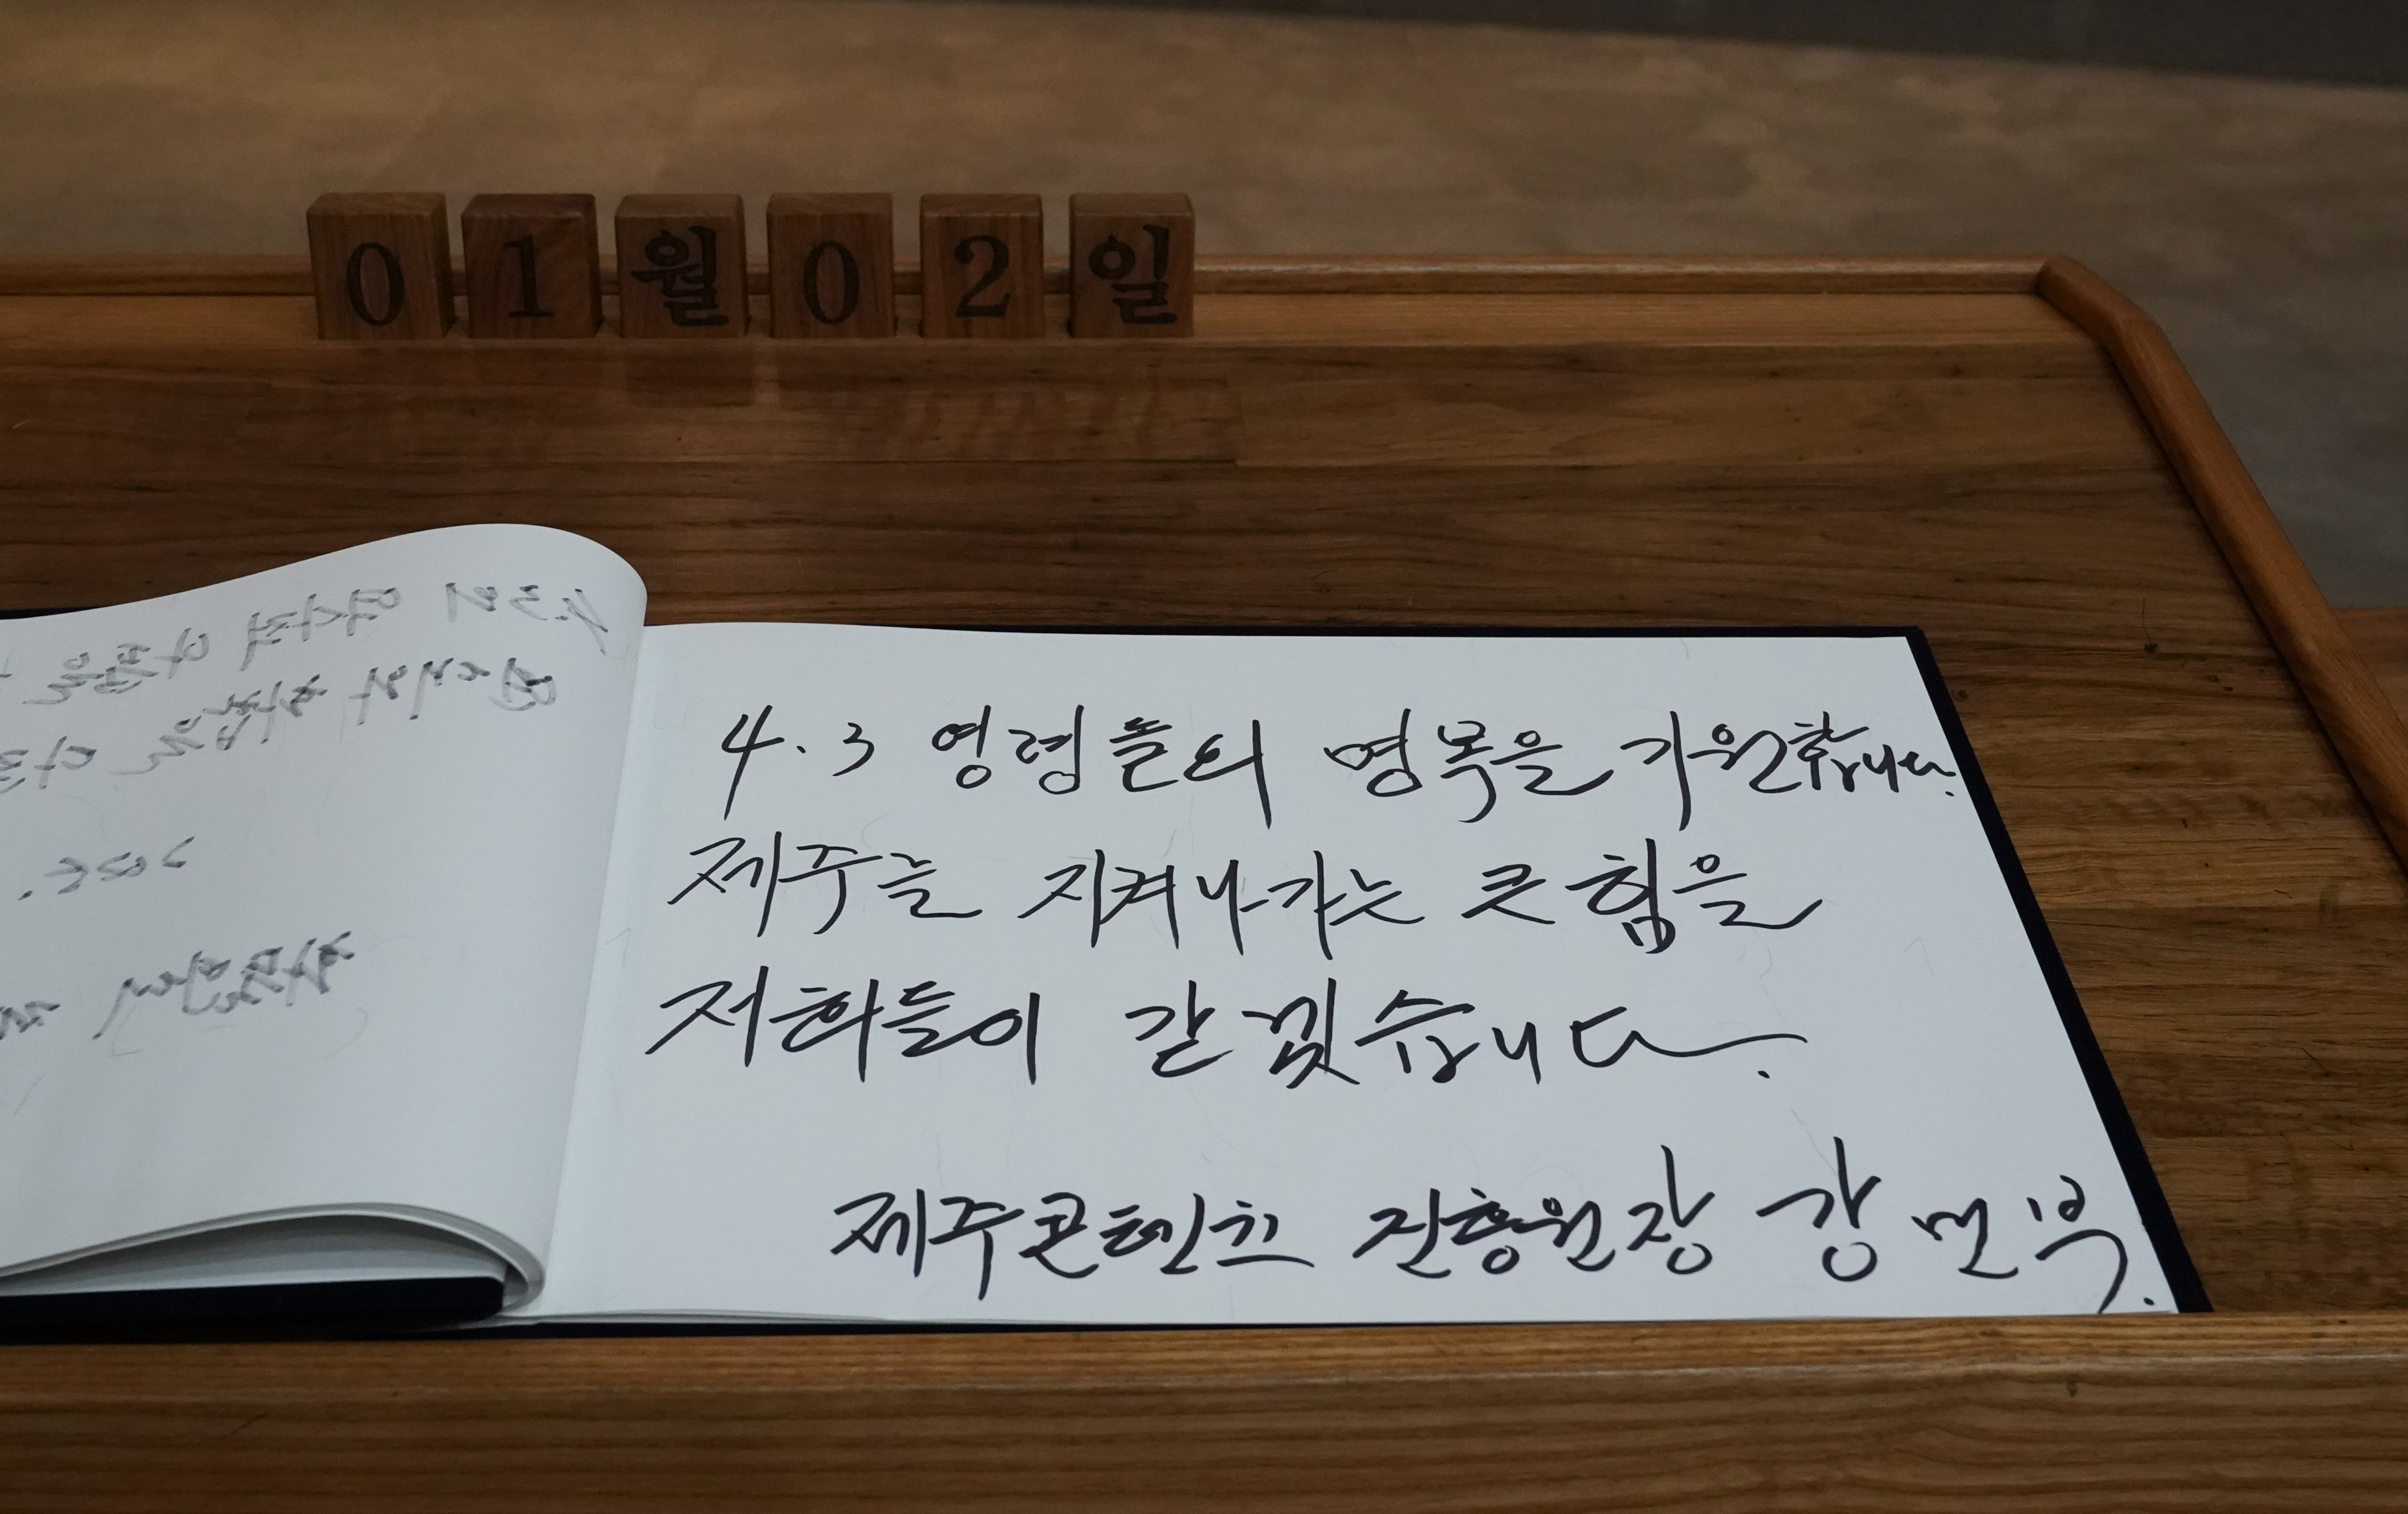 01월02일
4.3 영령들의 명복을 기원합니다.
제주를 지켜나가는 큰 힘을
저희들이 갖겠습니다.
제주콘텐츠 진흥원장 강민부.
4.3의 역사적 아픔을
2025.